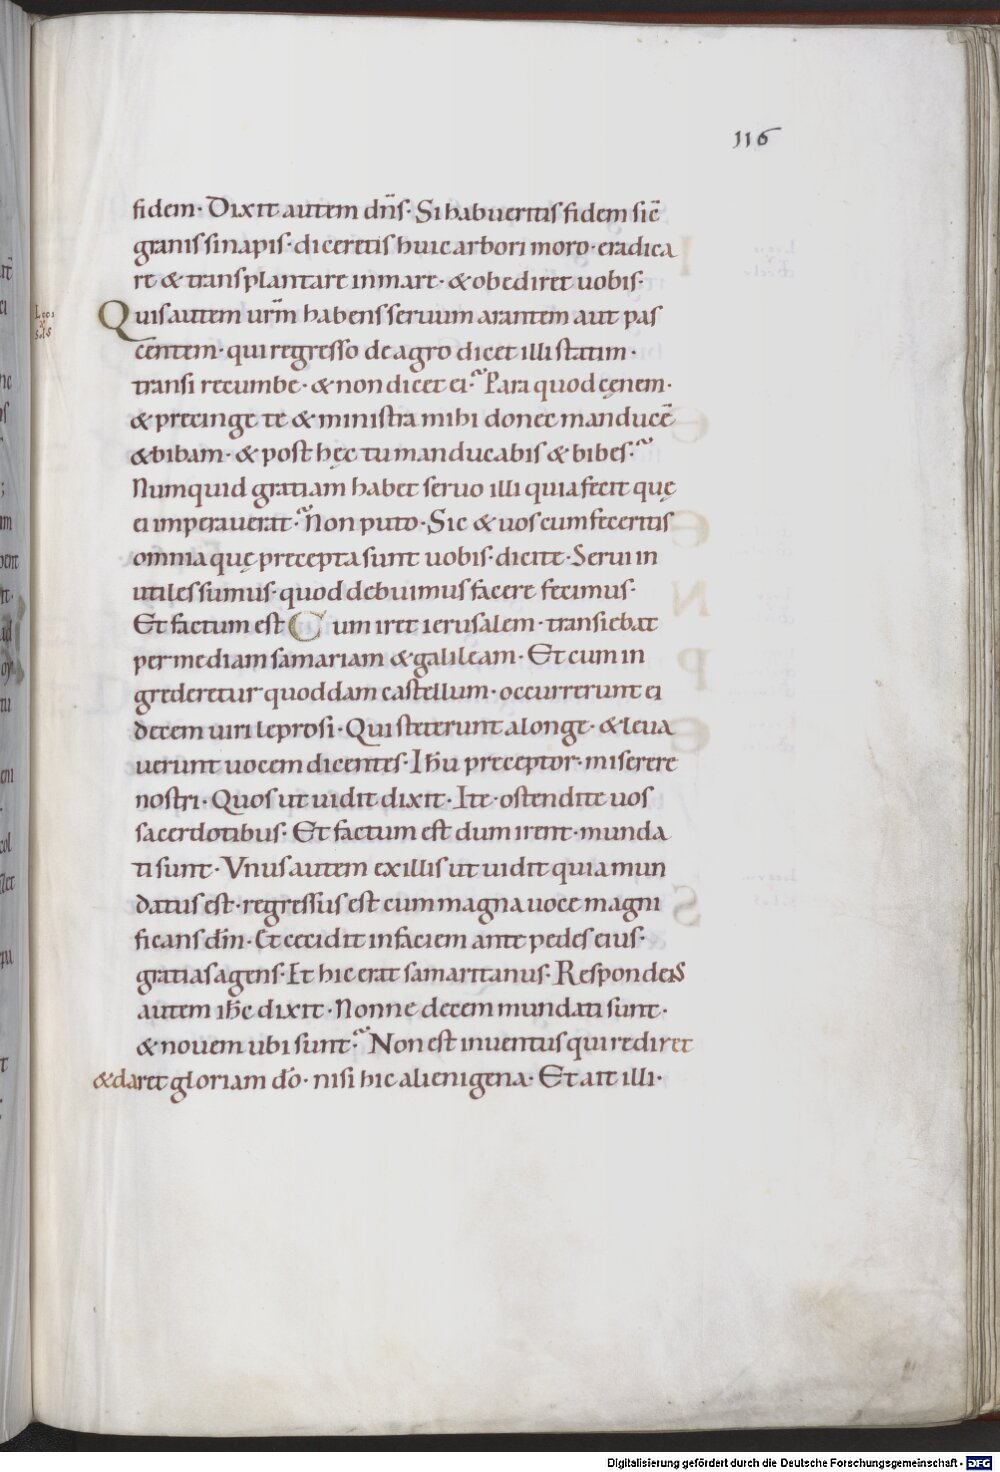 116
fidem· Dixit autem dn̄s· Si habueritis fidem sic̄
granis sinapis· diceretis huic arbori moro· eradica
re & transplantare in mare· & obediret uobis·
Quis autem ur̄m habens seruum arantem aut pas
centem· qui regresso de agro dicet illi statim·
transi recumbe· & non dicet ei· Para quod cęnem·
& precinge te & ministra mihi donec manducē
& bibam· & post hęc tu manducabis & bibes·
Numquid gratiam habet seruo illi quia fecit quę
ei imperauerat· Non puto· Sic & uos cum feceritis
omnia quę precepta sunt uobis· dicite· Serui in
utiles sumus· quod debuimus facere fecimus·
Et factum est Cum iret ierusalem· transiebat
per mediam samariam & galileam· Et cum in
grederetur quoddam castellum· occurrerunt ei
decem uiri leprosi· Qui steterunt a longe· & leua
uerunt uocem dicentes· Ih̄u preceptor· miserere
nostri· Quos ut uidit dixit· Ite· ostendite uos
sacerdotibus· Et factum est dum irent· munda
ti sunt· Vnus autem ex illis ut uidit quia mun
datus est· regressus est cum magna uoce magni
ficans dm̄· Et cecidit in faciem ante pedes eius·
gratias agens· Et hic erat samaritanus· Respondens
autem ih̄c dixit· Nonne decem mundati sunt·
& nouem ubi sunt· Non est inuentus qui rediret
& daret gloriam dō· nisi hic alienigena· Et ait illi·
Digitalisierung gefördert durch die Deutsche Forschungsgemeinschaft - DFG